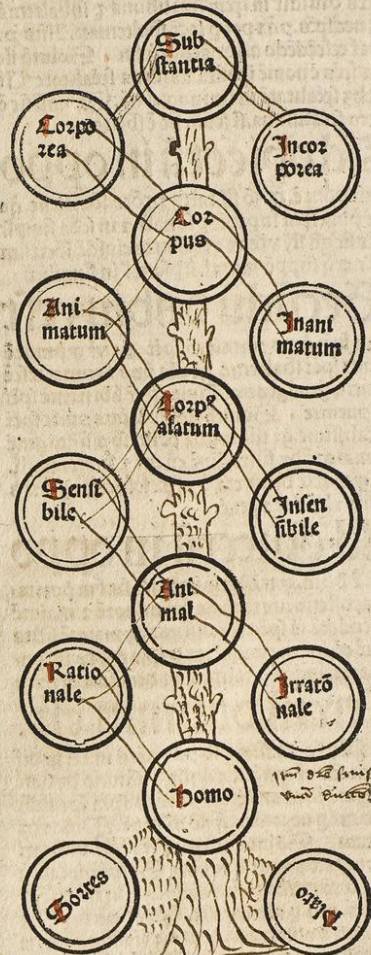 Sub
stantia
Corpo
rea
Incor
porea
Cor
pus
Ani
matum
Inani
matum
Corpꝰ
aĩatum
Sensi
bile
Insen
sibile
Ani
mal
Ratio
nale
Irratō
nale
Homo
Sortes
Plato